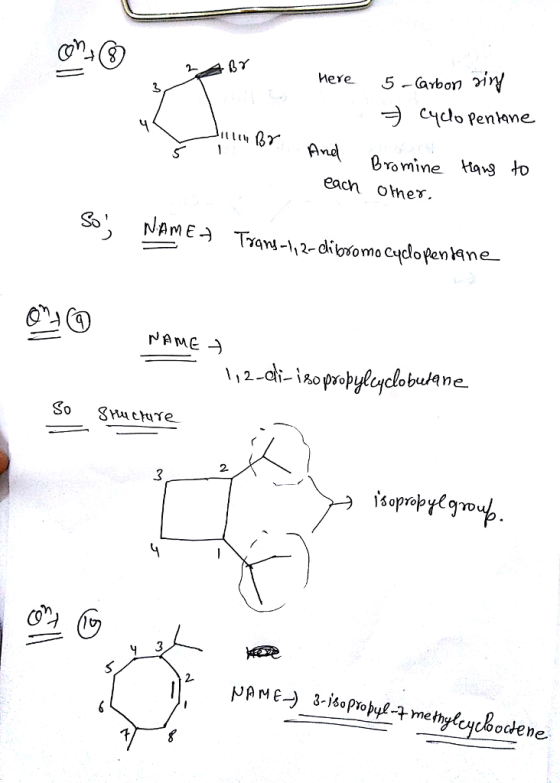 Qn→ 8
2 Br
3
4
5
1 Br
Here 5-Carbon ring
⇒ Cyclopentane
And Bromine trans to
each other.
So; NAME→ Trans-1,2-dibromocyclopentane
Qn→ 9
NAME →
1,2-di-isopropylcyclobutane
So Structure
3 2
4 1
→ isopropyl group.
Qn→ 10
4 3
5 2
6 1
7 8
NAME→ 3-isopropyl-7methylcyclooctene